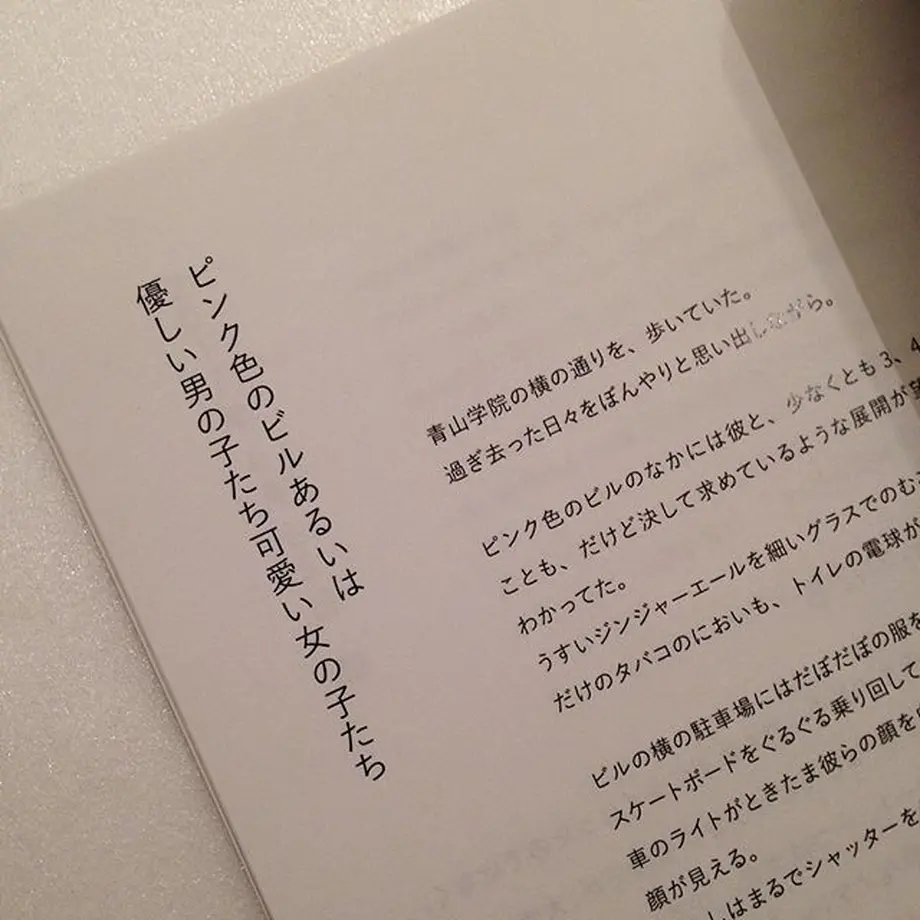 ピンク色のビルあるいは
優しい男の子たち可愛い女の子たち
青山学院の横の通りを、歩いていた。
過ぎ去った日々をぼんやりと思い出しながら。
ピンク色のビルのなかには彼と、少なくとも3、4
ことも、だけど決して求めているような展開が
わかってた。
うすいジンジャーエールを細いグラスでのむ
だけのタバコのにおいも、トイレの電球が
ビルの横の駐車場にはだぼだぼの服を
スケートボードをぐるぐる乗り回して
車のライトがときたま彼らの顔を
顔が見える。
しはまるでシャッターを